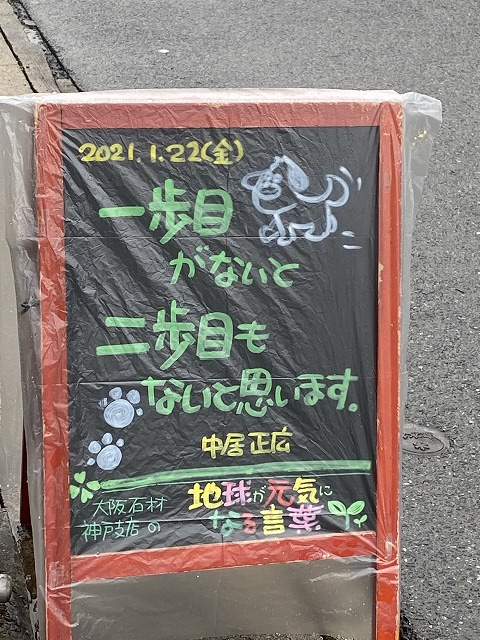 2021.1.22(金)
一歩目
がないと
二歩目も
ないと思います。
中居正広
大阪石材
神戸支店の
地球が元気に
なる言葉